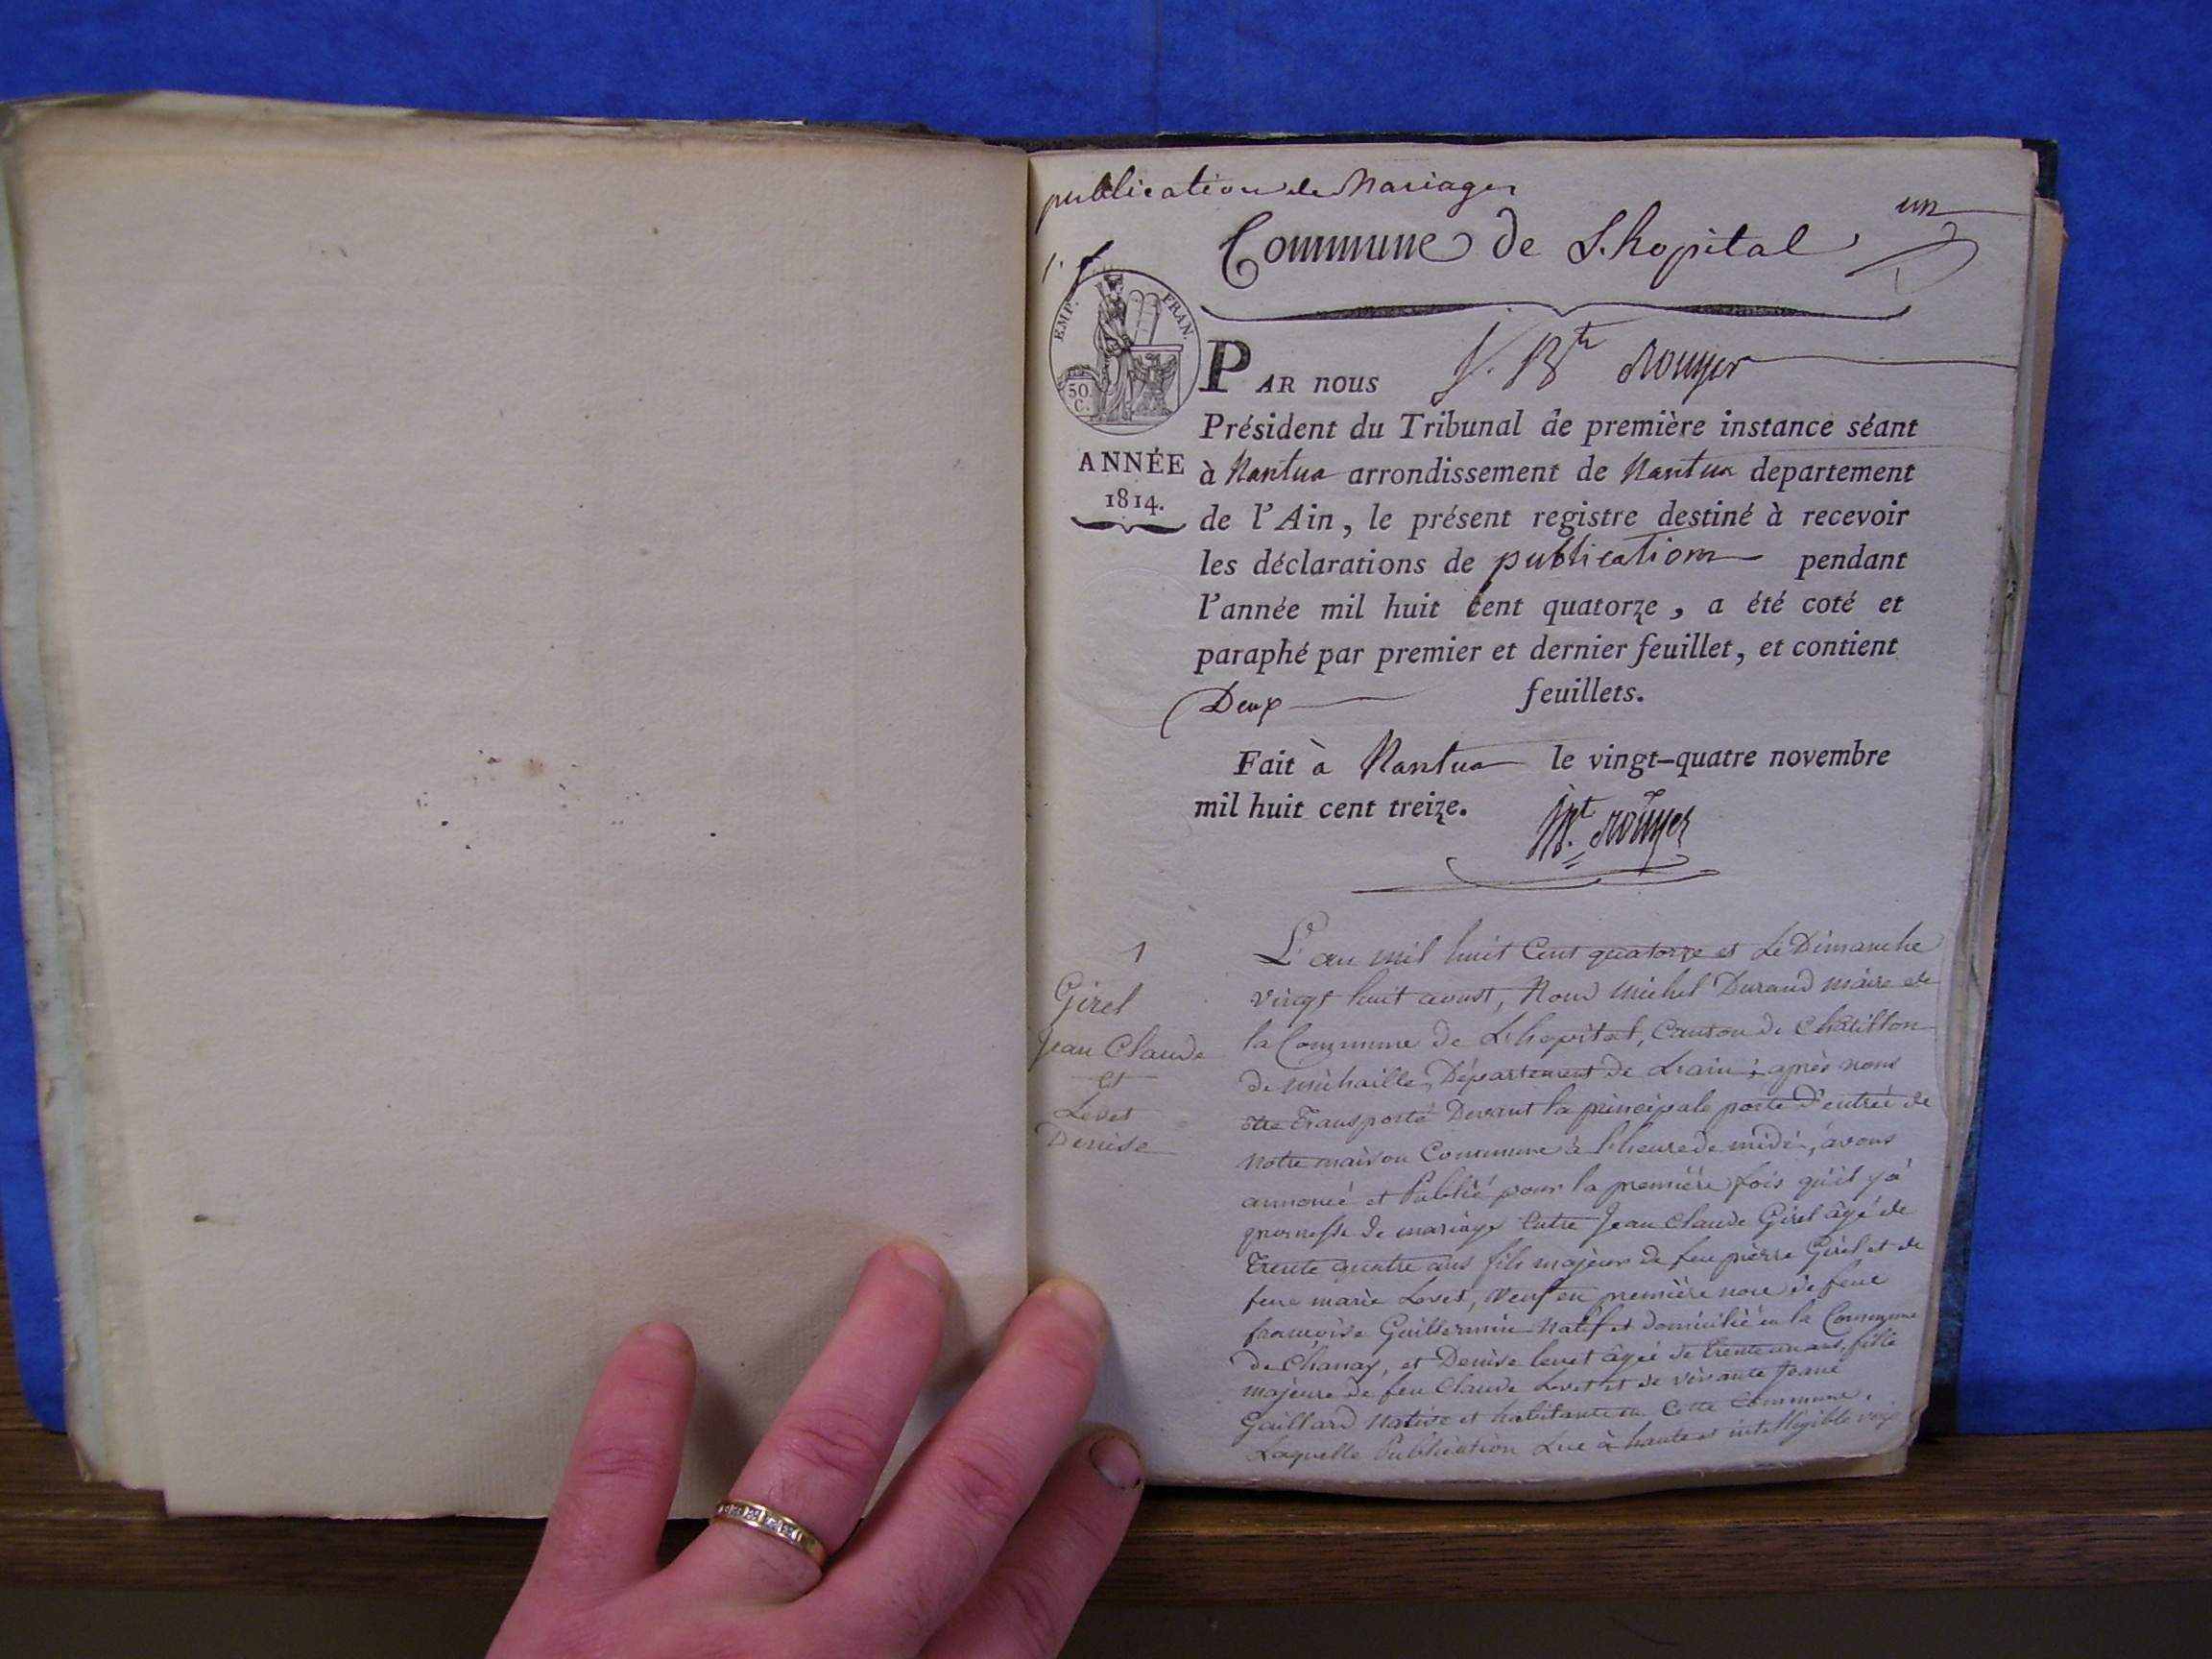 publication de Mariages
un
1.
Commune de L'hopital
EMP. FRAN.
50.
C.
ANNÉE
1814.
PAR nous J. Bte Rouyer
Président du Tribunal de première instance séant
à Nantua arrondissement de Nantua departement
de l'Ain, le présent registre destiné à recevoir
les déclarations de publications pendant
l'année mil huit cent quatorze, a été coté et
paraphé par premier et dernier feuillet, et contient
Deux feuillets.
Fait à Nantua le vingt-quatre novembre
mil huit cent treize.
JBt. Rouyer
1
Girel
Jean Claude
et
Levet
Denise
L'an mil huit Cent quatorze et Le Dimanche
vingt huit aoust, Nous Michel Durand maire de
la Commune de L'hopital, Canton de Châtillon
de michaille, Département de Lain; après nous
etre Transporté Devant la principale porte d'entrée de
Notre maison Commune à l'heure de midi, avons
annoncé et Publié pour la première fois qu'il y à
promesse de mariage Entre Jean Claude Girel âgé de
Trente quatre ans fils majeur de feu pierre Girel et de
feue marie Levet, veuf en première noce de feue
françoise Guillermin Natif et domicilié en la Commune
de Chanay, et Denise levet âgée de trente un ans, fille
majeure de feu Claude Levet et de vivante Jeane
Gaillard Native et habitante en Cette Commune.
Laquelle Publication Lue à haute et intelligible voix